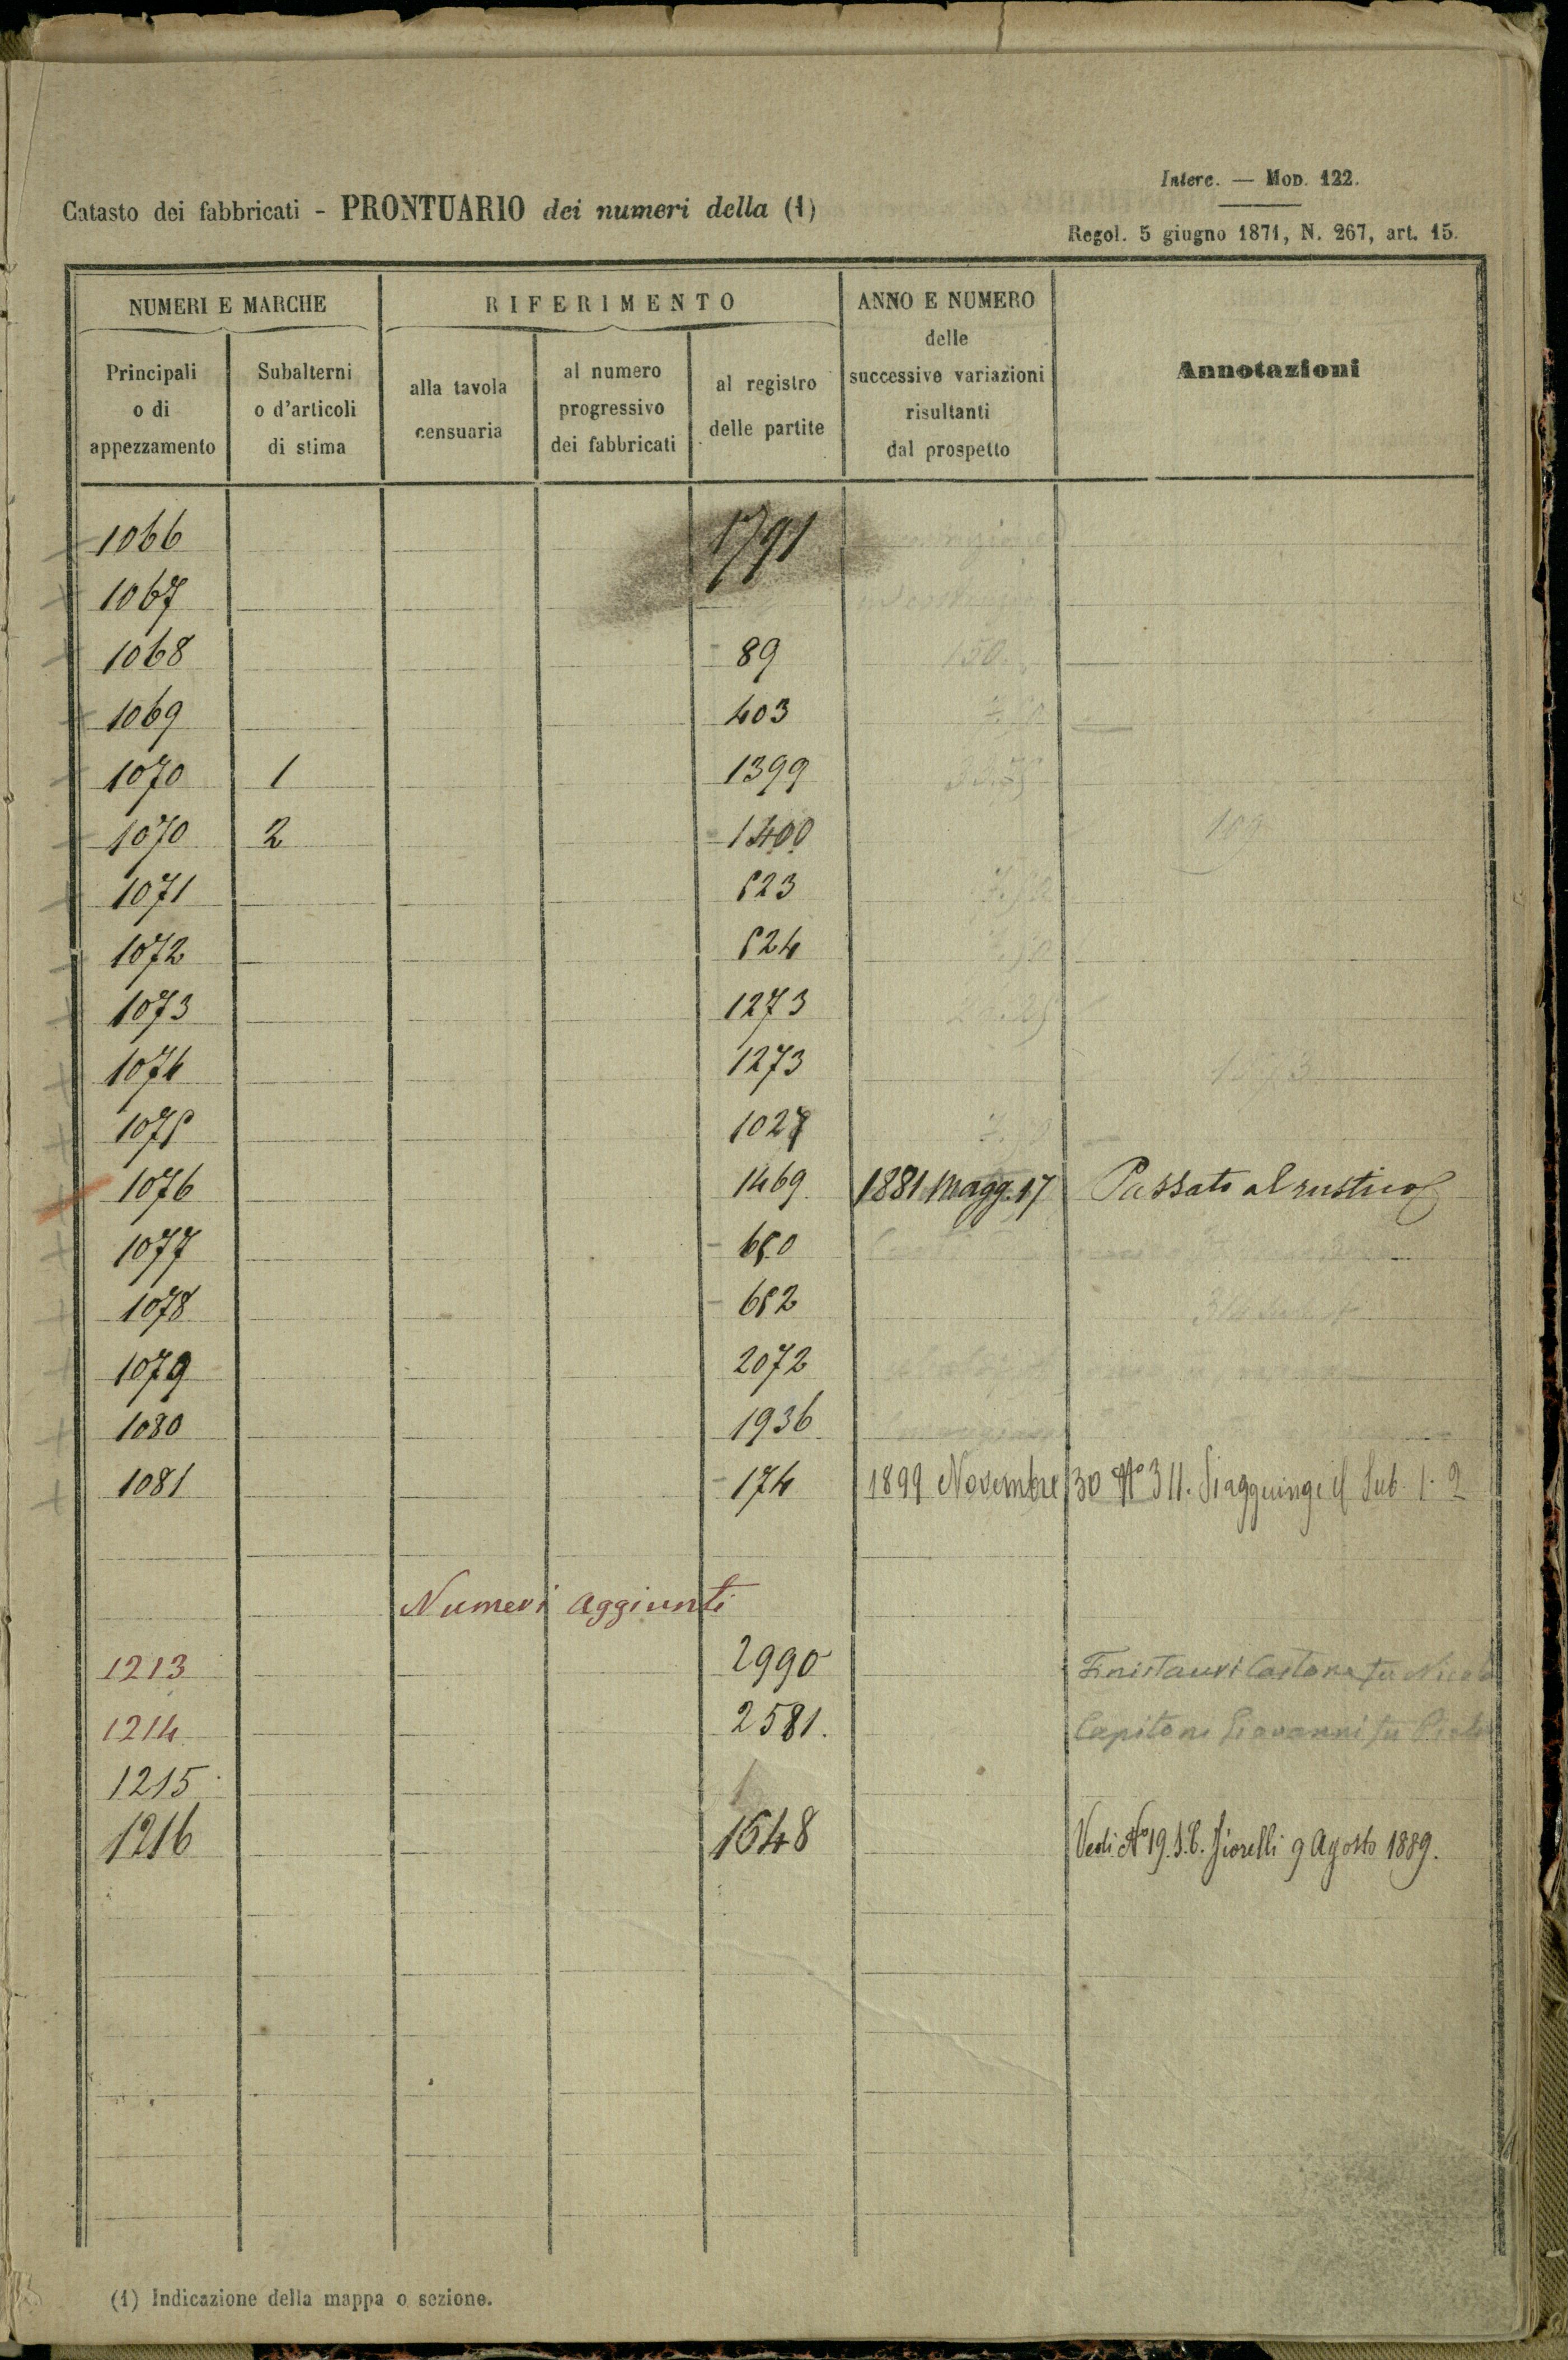 Interc. — Mod. 122.
Catasto dei fabbricati - PRONTUARIO dei numeri della (1)
Regol. 5 giugno 1871, N. 267, art. 15.
NUMERI E MARCHE
RIFERIMENTO
ANNO E NUMERO
delle
successive variazioni
risultanti
dal prospetto
Annotazioni
Principali
o di
appezzamento
Subalterni
o d'articoli
di stima
alla tavola
censuaria
al numero
progressivo
dei fabbricati
al registro
delle partite
1066 1791
1067
1068 89
1069 403
1070 1 1399
1070 2 1400
1071 523
1072 524
1073 1273
1074 1273
1075 1027
1076 1469 1881 Magg. 17 Passato al rustico
1077 650
1078 652
1079 2072
1080 1936
1081 174 1899 Novembre 30 N° 311. Si aggiunge il Sub. 1. 2
Numeri aggiunti
1213 2990 fu
1214 2581. Capitoni Giovanni fu
1215
1216 1648 Vedi N° 19. Fiorelli 9 Agosto 1889.
(1) Indicazione della mappa o sezione.